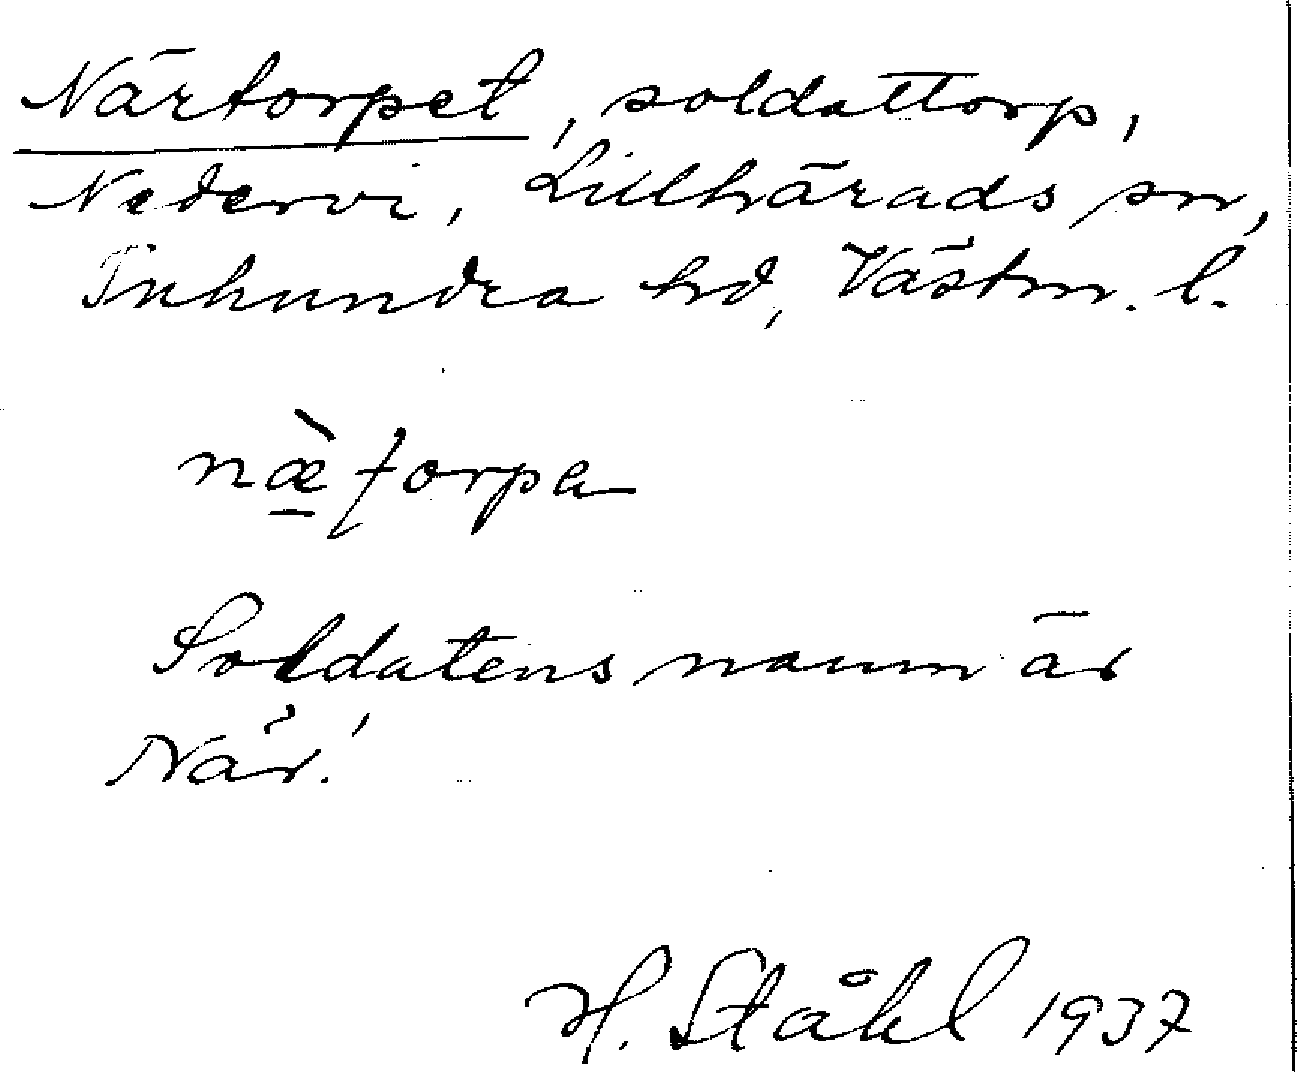 Närtorpet, soldattorp,
Nedervi, Lillhärads sn,
Tuhundra hd, Västm. l.
næ̀ʈorpa
Soldatens namn är
När!
H. Ståhl 1937